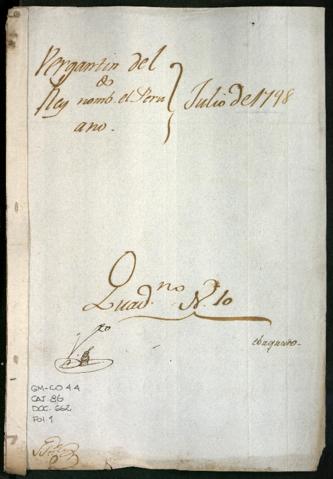 Vergantin del
Rey nomb. el Peru
ano.
Julio de 1798
Quad.no N. 10
GM-CO 44
CAJ. 86
DOC. 662
FOL 1